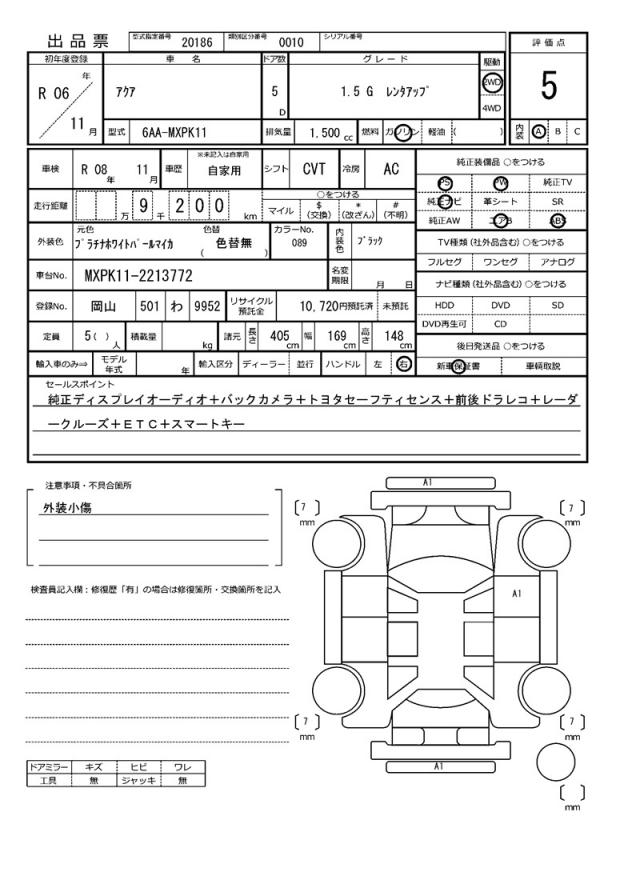 出品票 型式指定番号 20186 類別区分番号 0010 シリアル番号
評価点
5
内装 A B C
初年度登録 車名 ドア数 グレード 駆動
R 06 年 11 月
アクア 5 D 1.5 G レンタアップ 2WD 4WD
型式 6AA-MXPK11 排気量 1.500 cc 燃料 ガソリン 軽油 ( )
車検 R 08 年 11 月 車歴 ※未記入は自家用 自家用 シフト CVT 冷房 AC
走行距離 万 9 千 2 0 0 km
○をつける
マイル $ (交換) * (改ざん) # (不明)
外装色 元色 プラチナホワイトパールマイカ 色替 ( 色替無 ) カラーNo. 089 内装色 ブラック
車台No. MXPK11-2213772 名変期限 月 日
登録No. 岡山 501 わ 9952 リサイクル預託金 10,720円預託済 未預託
定員 5 ( ) 人 積載量 kg 諸元 長さ 405 cm 幅 169 cm 高さ 148 cm
輸入車のみ⇒ モデル年式 年 輸入区分 ディーラー 並行 ハンドル 左 右
純正装備品 ○をつける
PS PW 純正TV
純正ナビ 革シート SR
純正AW エアB ABS
TV種類 (社外品含む) ○をつける
フルセグ ワンセグ アナログ
ナビ種類 (社外品含む) ○をつける
HDD DVD SD
DVD再生可 CD
後日発送品 ○をつける
新車保証書 車輌取説
セールスポイント
純正ディスプレイオーディオ+バックカメラ+トヨタセーフティセンス+前後ドラレコ+レーダ
ークルーズ+ETC+スマートキー
注意事項・不具合箇所
外装小傷
検査員記入欄:修復歴「有」の場合は修復箇所・交換箇所を記入
ドアミラー キズ ヒビ ワレ
工具 無 ジャッキ 無
A1
[ 7 ] mm
[ 7 ] mm
A1
[ 7 ] mm
[ 7 ] mm
A1
[ ] mm